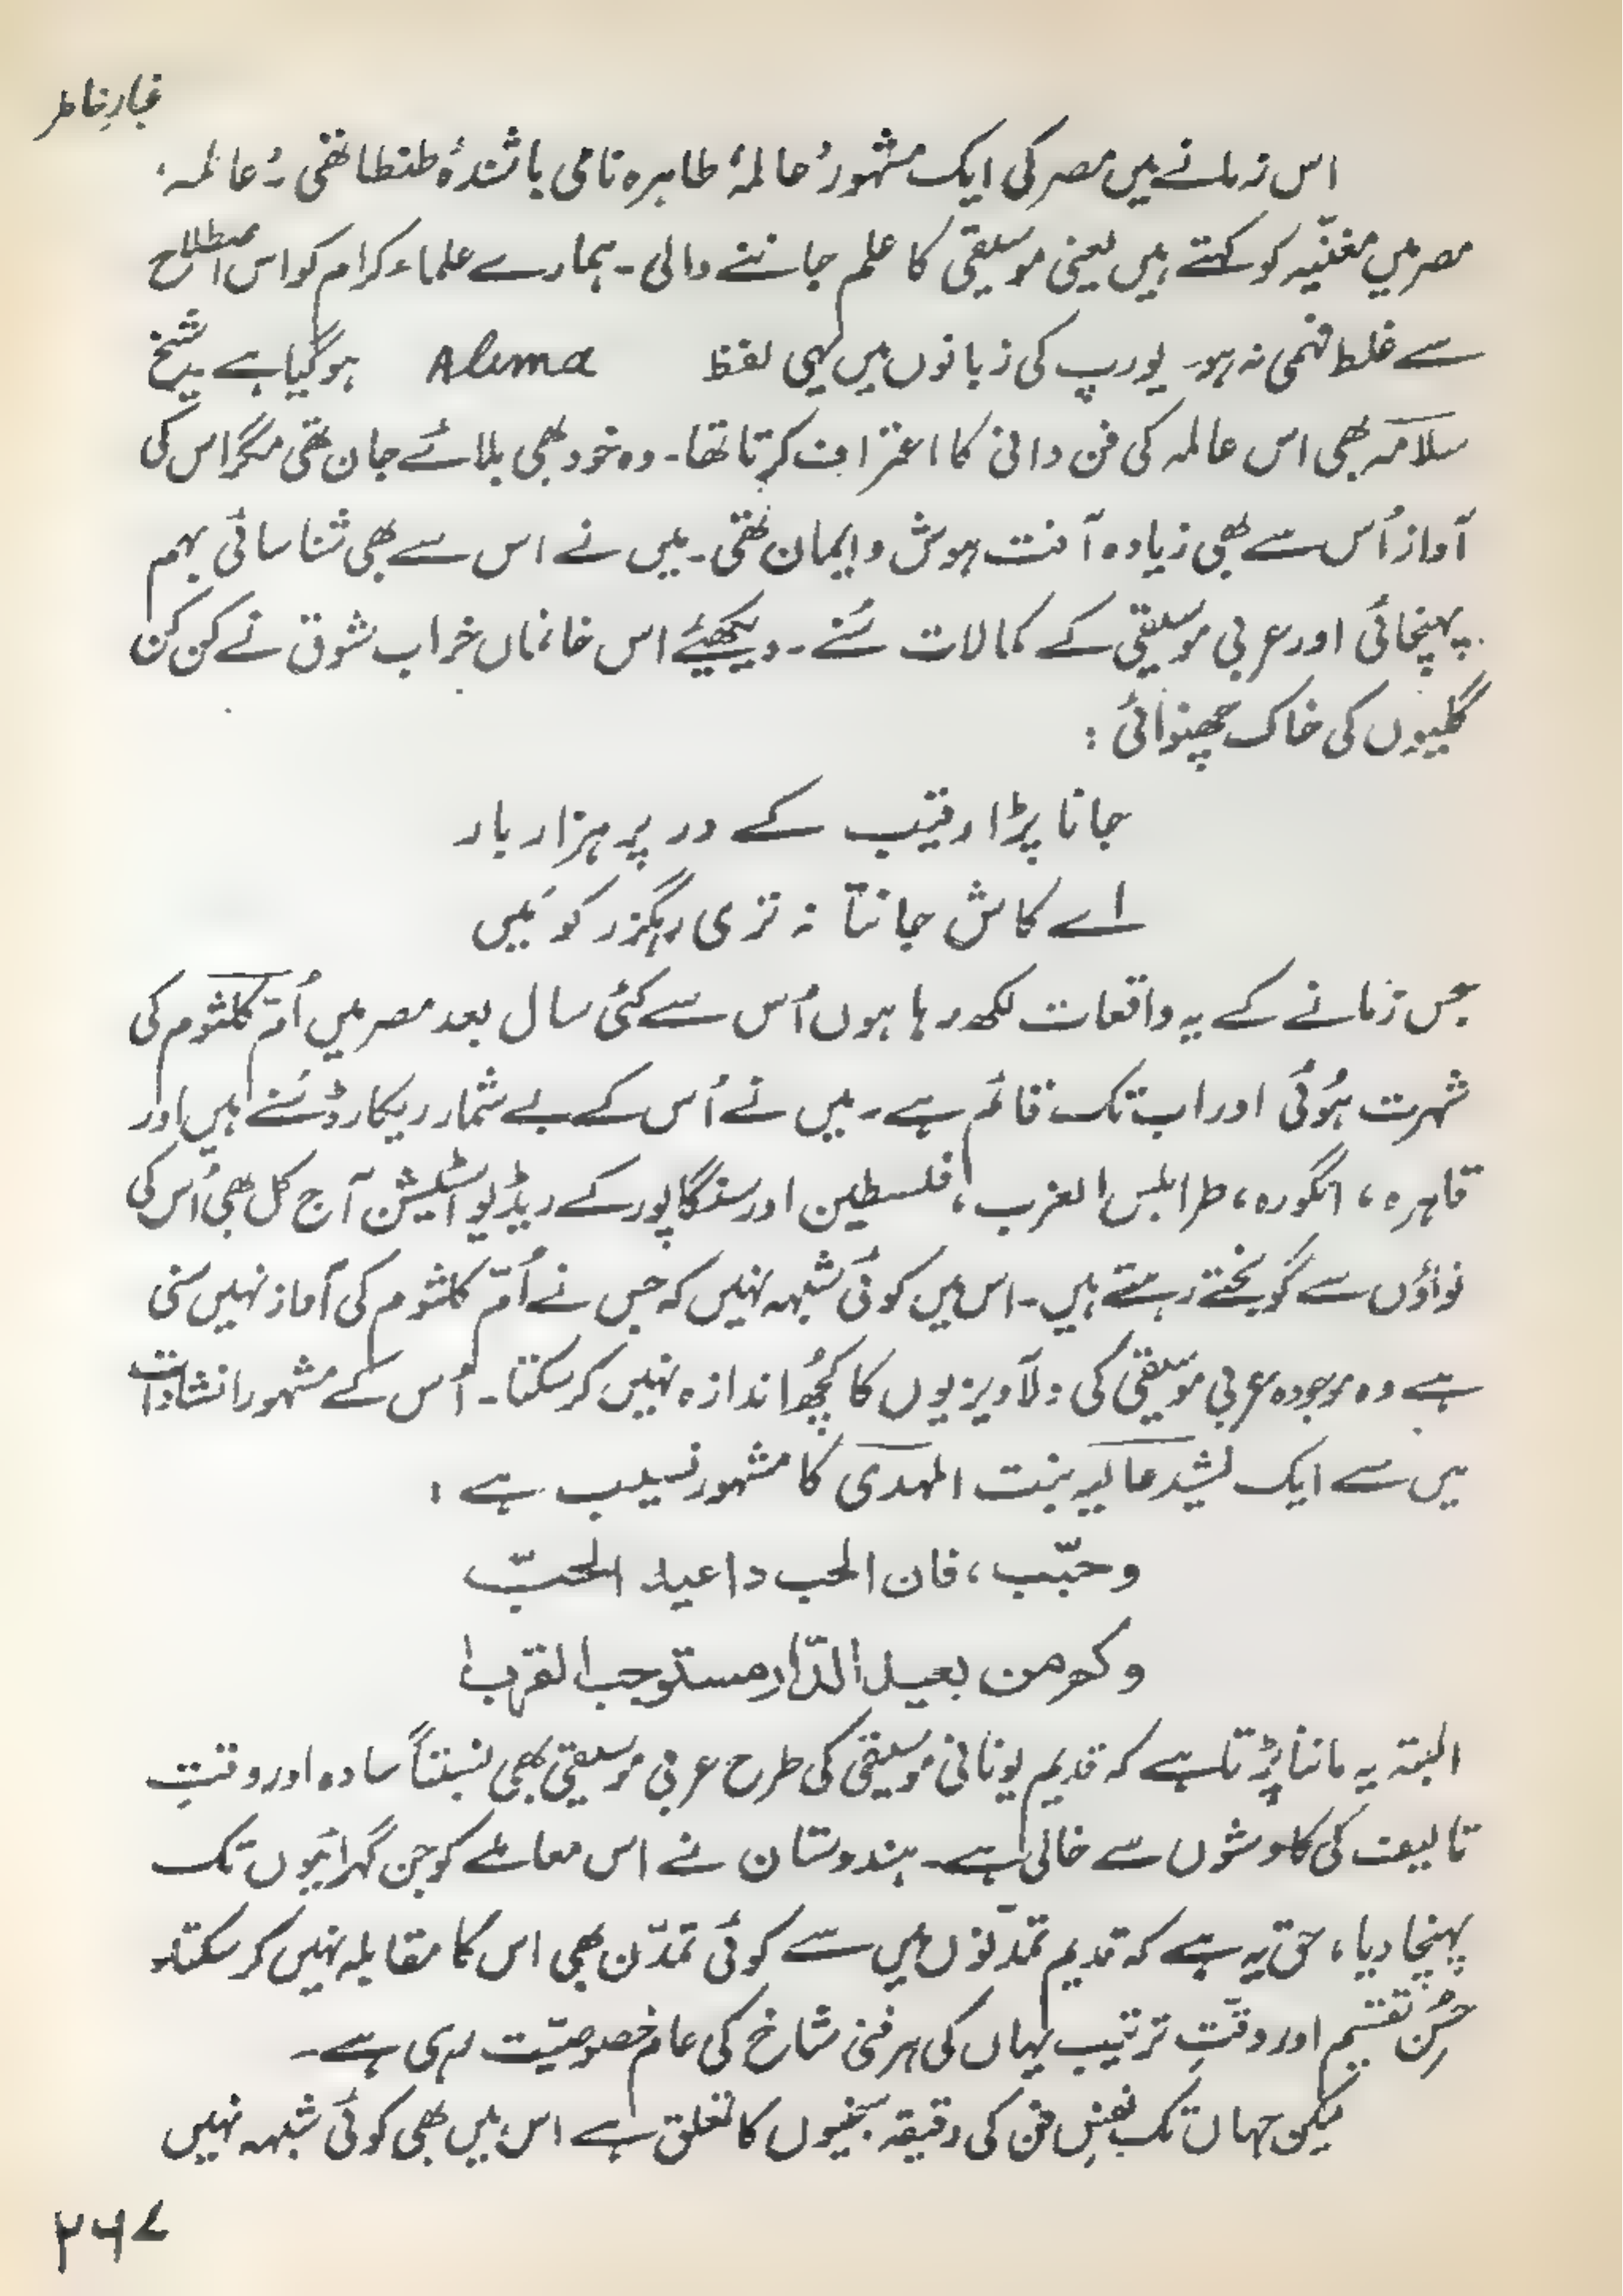 غبارِ خاطر
اس زمانے میں مصر کی ایک مشہور عالمہ طاہرہ نامی باشندۂ طنطا تھی۔ 'عالمہ'
مصر میں مغنّیہ کو کہتے ہیں یعنی موسیقی کا علم جاننے والی۔ ہمارے علماء کرام کو اس اصطلاح
سے غلط فہمی نہ ہو۔ یورپ کی زبانوں میں یہی لفظ Alema ہو گیا ہے۔ شیخ
سلامہ بھی اس عالمہ کی فن دانی کا اعتراف کرتا تھا۔ وہ خود بھی بلائے جان تھی مگر اس کی
آواز اُس سے بھی زیادہ آفت ہوش و ایمان تھی۔ میں نے اس سے بھی شناسائی بہم
پہنچائی اور عربی موسیقی کے کمالات سُنے۔ دیکھیئے اس خانماں خراب شوق نے کن کن
گلیوں کی خاک چھنوائی:
جانا پڑا رقیب کے در پر ہزار بار
اے کاش جانتا نہ تری رہگزر کو مَیں
جس زمانے کے یہ واقعات لکھ رہا ہوں اُس سے کئی سال بعد مصر میں اُمّ کلثوم کی
شہرت ہُوئی اور اب تک قائم ہے۔ میں نے اُس کے بے شمار ریکارڈ سُنے ہیں اور
قاہرہ، انگورہ، طرابلس الغرب، فلسطین اور سنگاپور کے ریڈیو اسٹیشن آج کل بھی اُس کی
نواؤں سے گونجتے رہتے ہیں۔ اس میں کوئی شبہہ نہیں کہ جس نے اُمّ کلثوم کی آواز نہیں سنی
ہے وہ موجودہ عربی موسیقی کی دلآویزیوں کا کچھ اندازہ نہیں کر سکتا۔ اُس کے مشہور انشادات
میں سے ایک نشید عالیہ بنت المہدی کا مشہور نسیب ہے:
وحبّب، فان الحب داعیة الحبّ
وکم من بعید الدّار مستوجب القرب
البتہ یہ ماننا پڑتا ہے کہ قدیم یونانی موسیقی کی طرح عربی موسیقی بھی نسبتاً سادہ اور دقتِ
تالیف کی کاوشوں سے خالی ہے۔ ہندوستان نے اس معاملے کو جن گہرائیوں تک
پہنچا دیا، حق یہ ہے کہ قدیم تمدّنوں میں سے کوئی تمدّن بھی اس کا مقابلہ نہیں کر سکتا۔
حُسنِ تقسیم اور دقّتِ ترتیب یہاں کی ہر فنی شاخ کی عام خصوصیّت رہی ہے۔
لیکن جہاں تک نفسِ فن کی دقیقہ سنجیوں کا تعلق ہے اس میں بھی کوئی شبہہ نہیں
۲۶۷